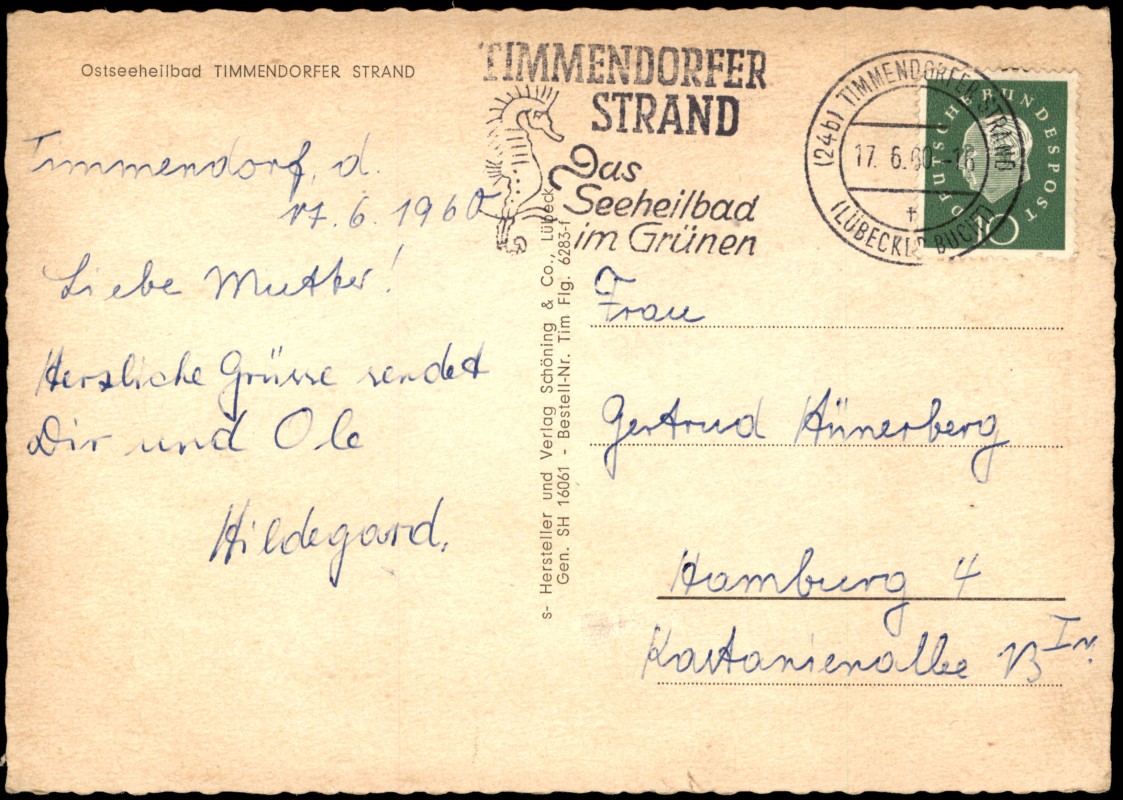 Ostseeheilbad TIMMENDORFER STRAND
TIMMENDORFER
STRAND
Das
Seeheilbad
im Grünen
(24b) TIMMENDORFER STRAND
17. 6.60.-18
(LÜBECKER BUCHT)
DEUTSCHE BUNDESPOST
10
Timmendorf, d.
17. 6. 1960
Liebe Mutter!
Herzliche Grüsse sendet
Dir und Ole
Hildegard.
s- Hersteller und Verlag Schöning & Co., Lübeck
Gen. SH 16061 - Bestell-Nr. Tim Flg. 6283-f
Frau
Gertrud Hünerberg
Hamburg 4
Kastanienallee 13 IV.